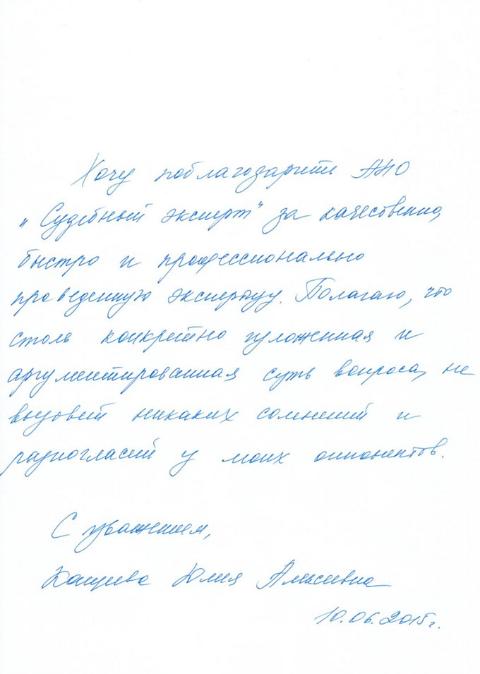 Хочу поблагодарить АНО
"Судебный эксперт" за качественно,
быстро и профессионально
проведенную экспертизу. Полагаю, что
столь конкретно изложенная и
аргументированная суть вопроса, не
вызовет никаких сомнений и
разногласий у моих оппонентов.
С уважением,
Юлия Алексеевна
10.06.2015г.